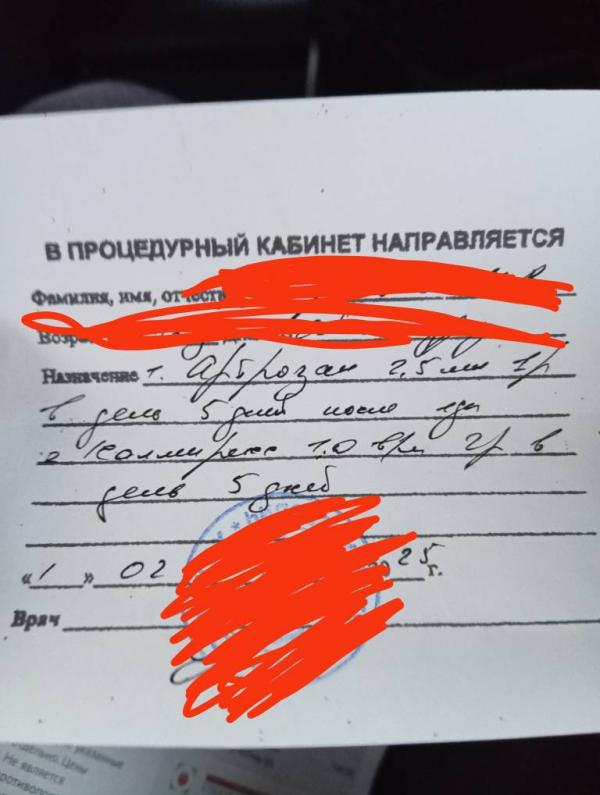 В ПРОЦЕДУРНЫЙ КАБИНЕТ НАПРАВЛЯЕТСЯ
Фамилия, имя, отчеств
Возра
Назначение 1. Артрозан 2,5 мл 1р
в день 5 дней после еды
2 Колмирекс 1.0 в/м 2р в
день 5 дней
"1" 02 25 г.
Врач
указанные
Цены
Не является